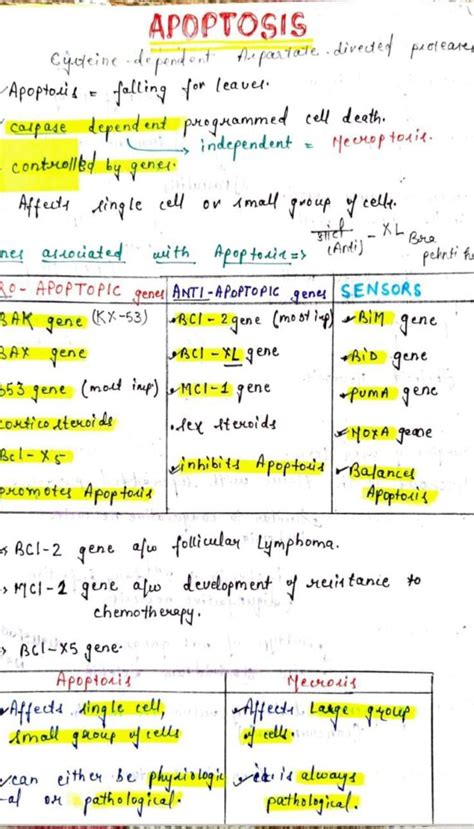 APOPTOSIS
Cysteine-dependent Aspartate-directed proteases
Apoptosis = falling for leaves.
caspase dependent programmed cell death.
independent = Necroptosis.
controlled by genes.
Affects single cell or small group of cells.
(Anti) - XL
nes associated with Apoptosis =>
RO-APOPTOPIC genes ANTI-APOPTOPIC genes SENSORS
BAK gene (KX-53) BCl-2 gene (most imp) BiM gene
BAX gene BCl-XL gene BiD gene
p53 gene (most imp) MCl-1 gene PUMA gene
corticosteroids sex steroids NOXA gene
Bcl-X5 inhibits Apoptosis Balances
promotes Apoptosis Apoptosis
BCl-2 gene a/w follicular lymphoma.
MCl-1 gene a/w development of resistance to
chemotherapy.
BCl-X5 gene.
Apoptosis Necrosis
Affects single cell, Affects Large group
small group of cells of cells.
can either be physiologic it is always
-al or pathological. pathological.